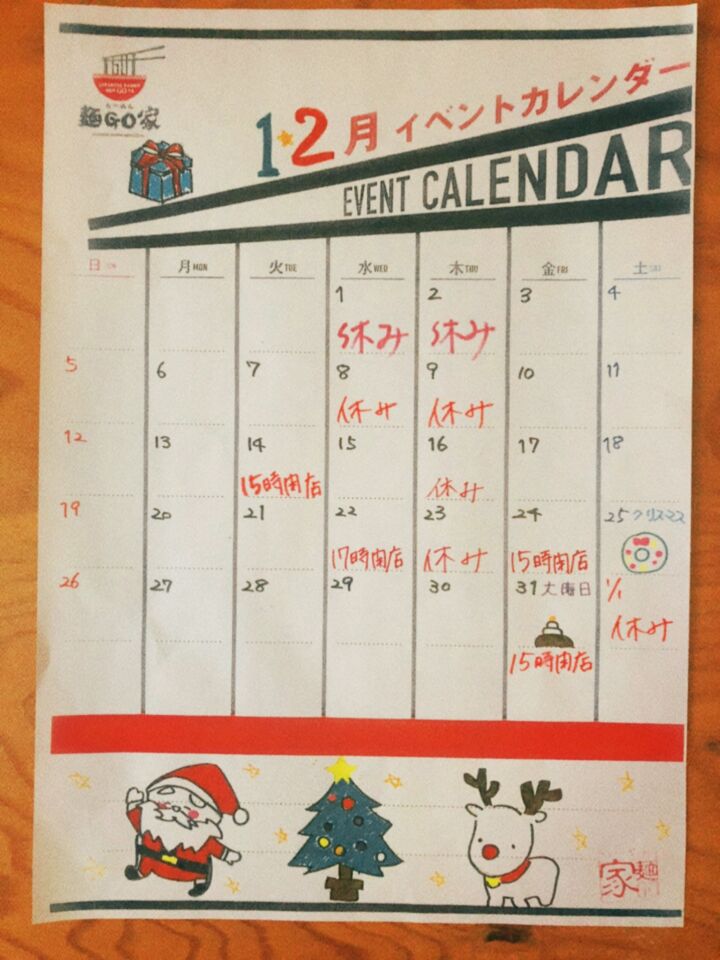 らーめん
麺GO家
12月イベントカレンダー
EVENT CALENDAR
日 月MON 火TUE 水WED 木THU 金FRI 土
1 2 3 4
休み 休み
5 6 7 8 9 10 11
休み 休み
12 13 14 15 16 17 18
15時閉店 休み
19 20 21 22 23 24 25 クリスマス
17時閉店 休み 15時閉店
26 27 28 29 30 31 大晦日 1/1
休み
15時閉店
家麺